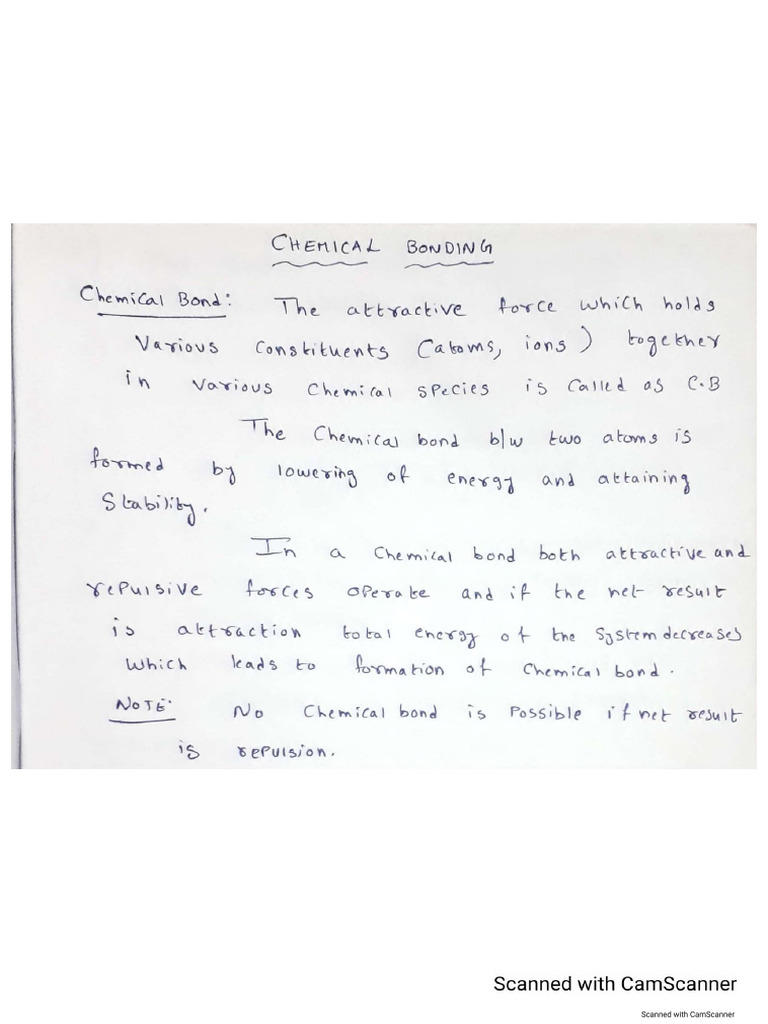 CHEMICAL BONDING
Chemical Bond: The attractive force which holds
various constituents (atoms, ions) together
in various chemical species is called as C.B
The chemical bond b/w two atoms is
formed by lowering of energy and attaining
stability.
In a chemical bond both attractive and
repulsive forces operate and if the net result
is attraction total energy of the system decreases
which leads to formation of chemical bond.
NOTE: No chemical bond is possible if net result
is repulsion.
Scanned with CamScanner
Scanned with CamScanner